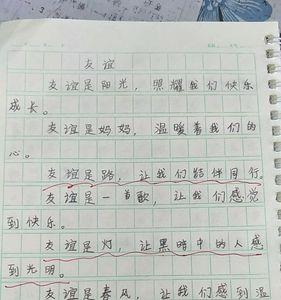 友谊
友谊是阳光，照耀我们快乐
成长。
友谊是妈妈，温暖着我们的
心。
友谊是路，让我们结伴同行。
友谊是一首歌，让我们感觉
到快乐。
友谊是灯，让黑暗中的人感
到光明。
友谊是春风，让我们感到温